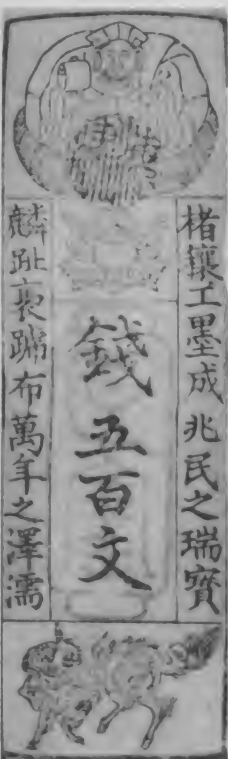 楮鑲工墨成兆民之瑞寳
錢五百文
麟趾褭蹏布萬年之澤濡